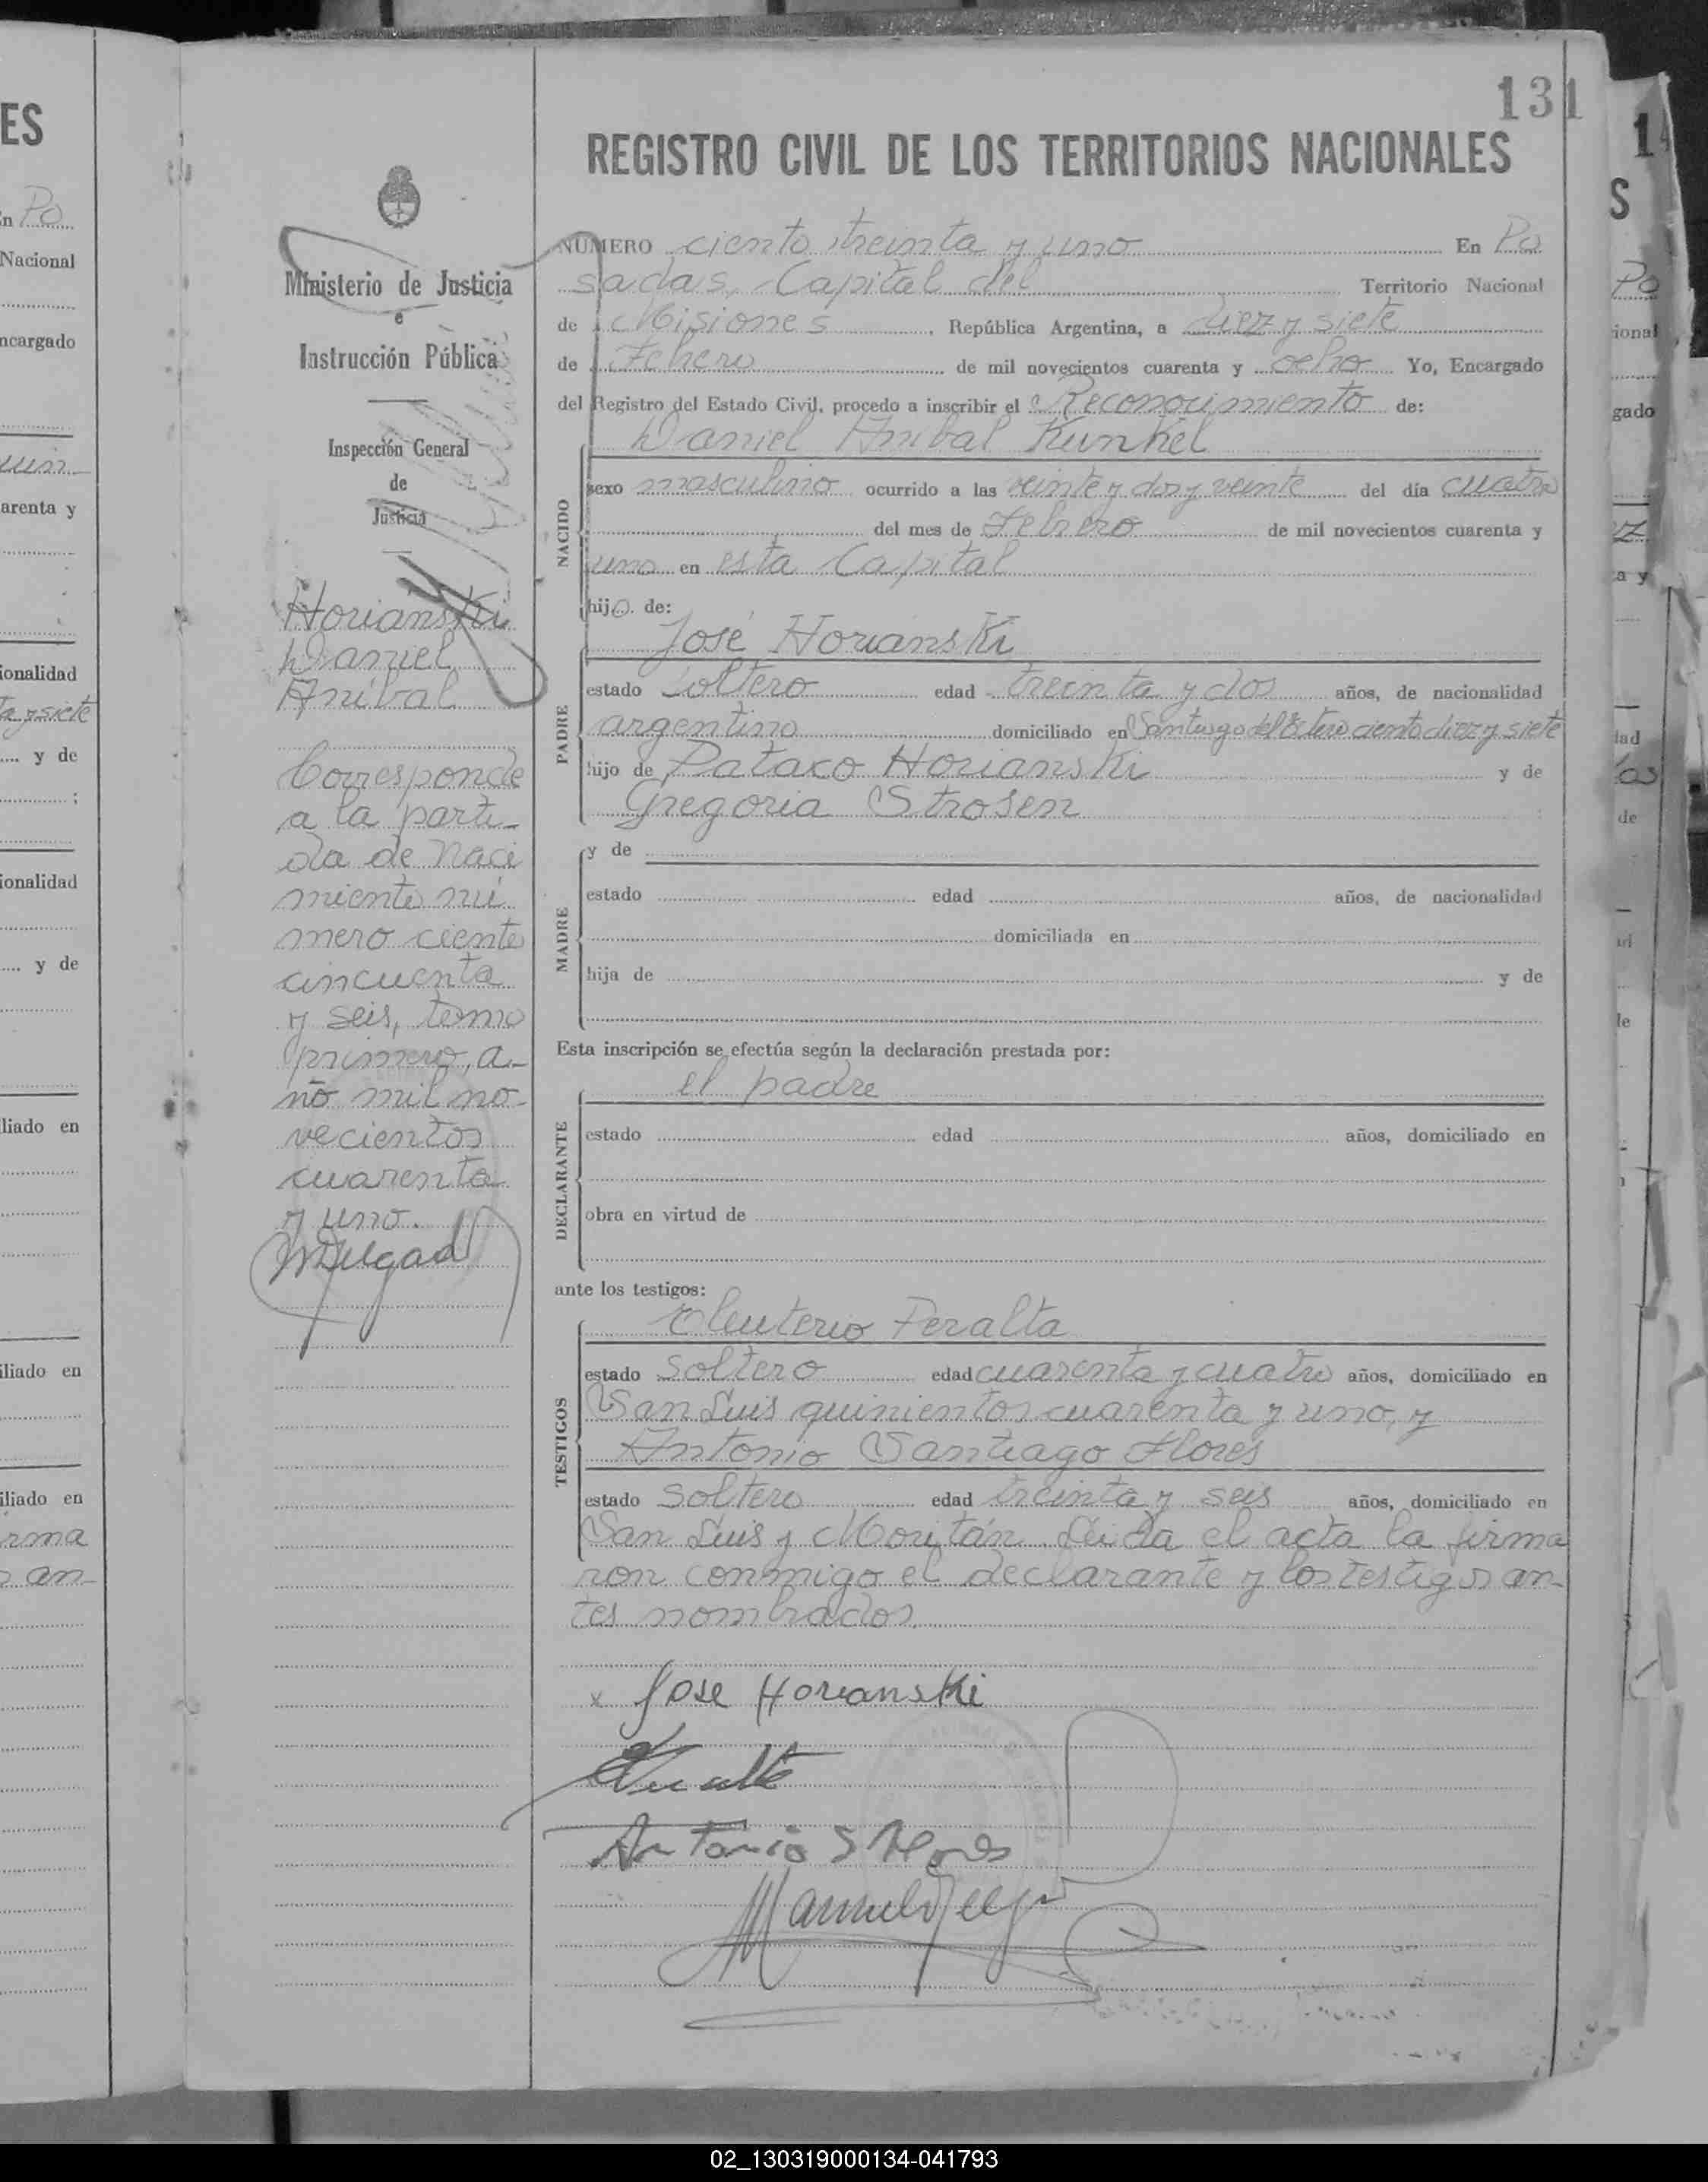 131
REGISTRO CIVIL DE LOS TERRITORIOS NACIONALES
Ministerio de Justicia
e
Instrucción Pública
Inspección General
de
Justicia
Horianski
Daniel
Aníbal
Corresponde
a la parti-
da de naci
miento nú
mero ciento
cincuenta
y seis, tomo
primero, a-
ño mil no-
vecientos
cuarenta
y uno.
MDelgado
NÚMERO ciento treinta y uno En Po
sadas, Capital del Territorio Nacional
de Misiones, República Argentina, a diez y siete
de Febrero de mil novecientos cuarenta y ocho Yo, Encargado
del Registro del Estado Civil, procedo a inscribir el Reconocimiento de:
Daniel Aníbal Kunkel
NACIDO
sexo masculino ocurrido a las veinte y dos y veinte del día cuatro
del mes de Febrero de mil novecientos cuarenta y
uno en esta Capital
hijo de:
José Horianski
PADRE
estado soltero edad treinta y dos años, de nacionalidad
argentino domiciliado en Santiago del Estero ciento diez y siete
hijo de Pataco Horianski y de
Gregoria Strosen
MADRE
y de
estado edad años, de nacionalidad
domiciliada en
hija de y de
Esta inscripción se efectúa según la declaración prestada por:
el padre
DECLARANTE
estado edad años, domiciliado en
obra en virtud de
ante los testigos:
Eleuterio Peralta
TESTIGOS
estado soltero edad cuarenta y cuatro años, domiciliado en
San Luis quinientos cuarenta y uno, y
Antonio Santiago Flores
estado soltero edad treinta y seis años, domiciliado en
San Luis y Moritán. Leída el acta la firma
ron conmigo el declarante y los testigos an-
tes nombrados.
x Jose Horianski
Antonio S Flores
02_130319000134-041793